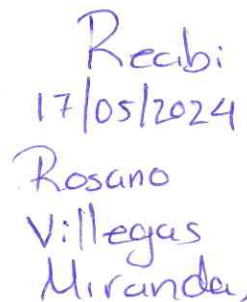 Recibi
17/05/2024
Rosano
Villegas
Miranda,